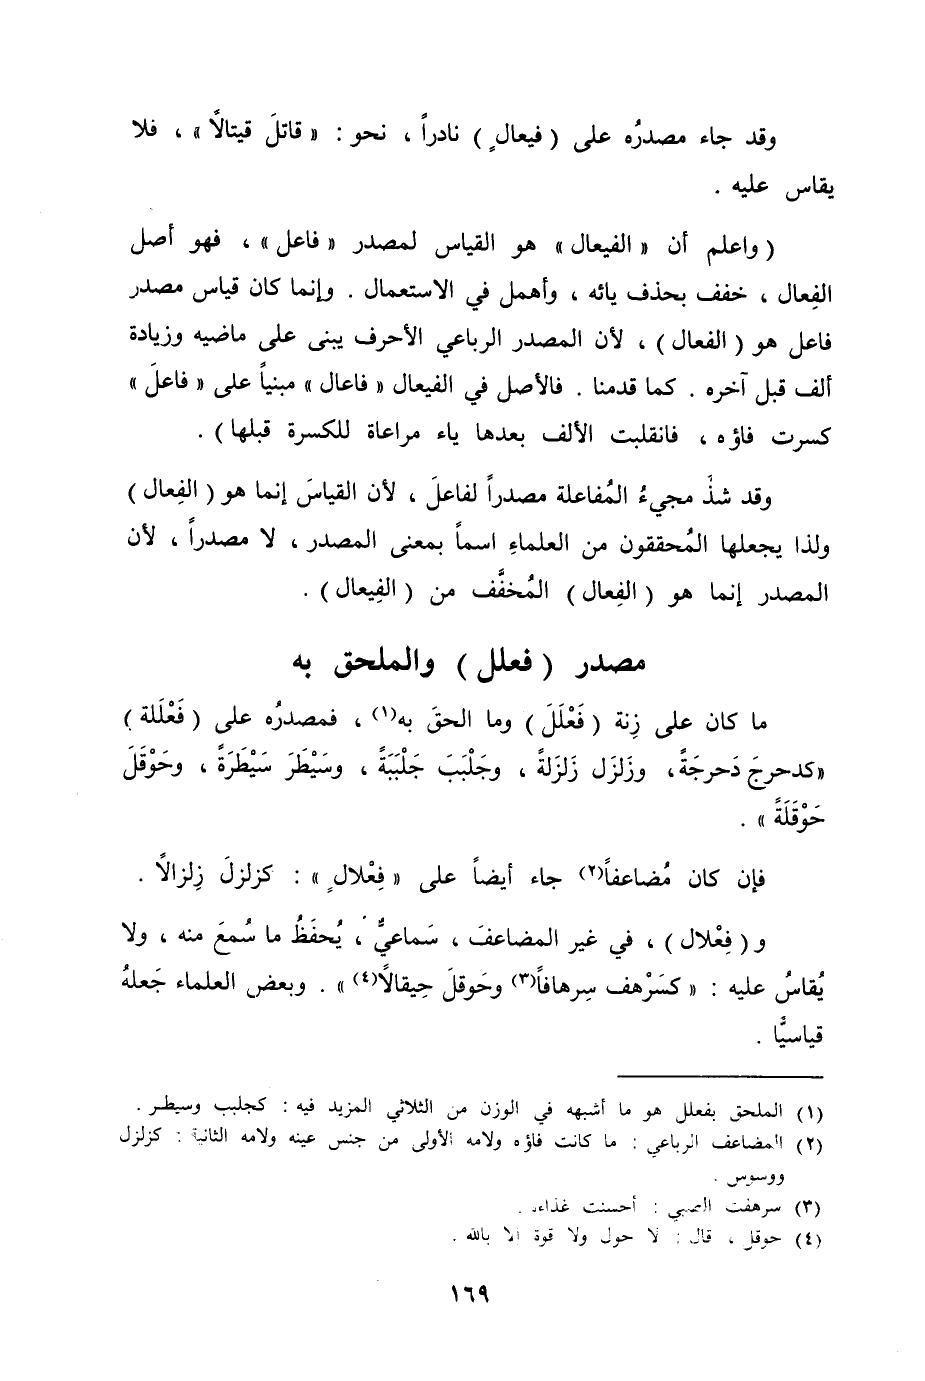 وقد جاء مصدرُه على ( فيعال ٍ ) نادراً ، نحو : « قاتلَ قيتالاً » ، فلا
يقاس عليه .
( واعلم أن « الفيعال » هو القياس لمصدر « فاعل » ، فهو أصل
الفِعال ، خفف بحذف يائه ، وأهمل في الاستعمال . وإنما كان قياس مصدر
فاعل هو ( الفعال ) ، لأن المصدر الرباعي الأحرف يبنى على ماضيه وزيادة
ألف قبل آخره . كما قدمنا . فالأصل في الفيعال « فاعال » مبنياً على « فاعلَ »
كسرت فاؤه ، فانقلبت الألف بعدها ياء مراعاة للكسرة قبلها ) .
وقد شذَّ مجيءُ المُفاعلة مصدراً لفاعلَ ، لأن القياسَ إنما هو ( الفِعال )
ولذا يجعلها المُحققون من العلماءِ اسماً بمعنى المصدر ، لا مصدراً ، لأن
المصدر إنما هو ( الفِعال ) المُخفَّف من ( الفِيعال ) .
مصدر ( فعلل ) والملحق به
ما كان على زِنة ( فَعْلَلَ ) وما الحقَ به(١) ، فمصدرُه على ( فَعْلَلة )
«كدحرجَ دَحرجَةً ، وزلزَل زَلزلةً ، وجَلْبَبَ جَلْبَبَةً ، وسَيْطَرَ سَيْطَرَةً ، وحَوْقَلَ
حَوْقَلَةً » .
فإن كان مُضاعفاً(٢) جاء أيضاً على « فِعْلال ٍ » : كزلزلَ زِلزالاً .
و ( فِعْلال ) ، في غير المضاعفَ ، سَماعيٌّ ، يُحفَظُ ما سُمعَ منه ، ولا
يُقاسُ عليه : « كسَرْهف سِرهافاً(٣) وحَوقلَ حِيقالاً(٤) » . وبعض العلماء جَعلهُ
قياسيًّا .
(١) الملحق بفعلل هو ما أشبهه في الوزن من الثلاثي المزيد فيه : كجلبب وسيطر .
(٢) المضاعف الرباعي : ما كانت فاؤه ولامه الأولى من جنس عينه ولامه الثانية : كزلزل
ووسوس .
(٣) سرهفت الصبي : أحسنت غذاءه .
(٤) حوقل ، قال : لا حول ولا قوة الا بالله .
١٦٩